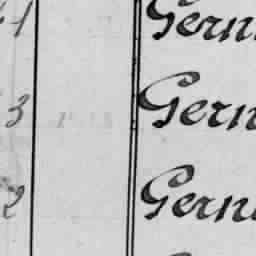 4 Gern
3 Gern
2 Gern